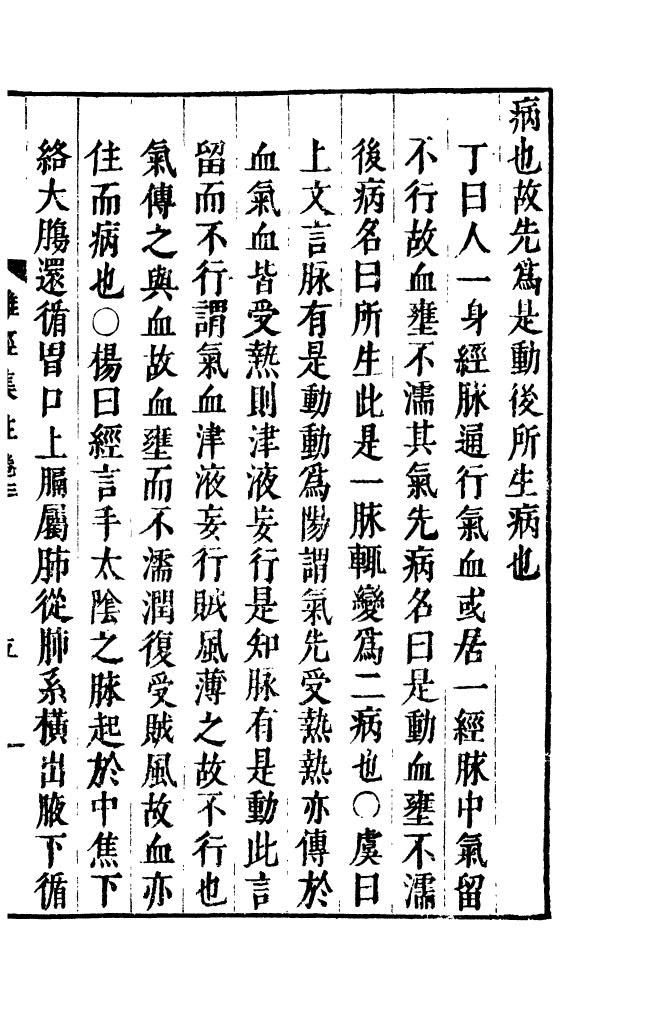 病也故先爲是動後所生病也
丁曰人一身經脉通行氣血或居一經脉中氣留
不行故血壅不濡其氣先病名曰是動血壅不濡
後病名曰所生此是一脉輒變爲二病也○虞曰
上文言脉有是動動爲陽謂氣先受熱熱亦傳於
血氣血皆受熱則津液妄行是知脉有是動此言
留而不行謂氣血津液妄行賊風薄之故不行也
氣傳之與血故血壅而不濡潤復受賊風故血亦
住而病也○楊曰經言手太陰之脉起於中焦下
絡大膓還循胃口上膈屬肺從肺系橫出腋下循
難經集註卷三
五